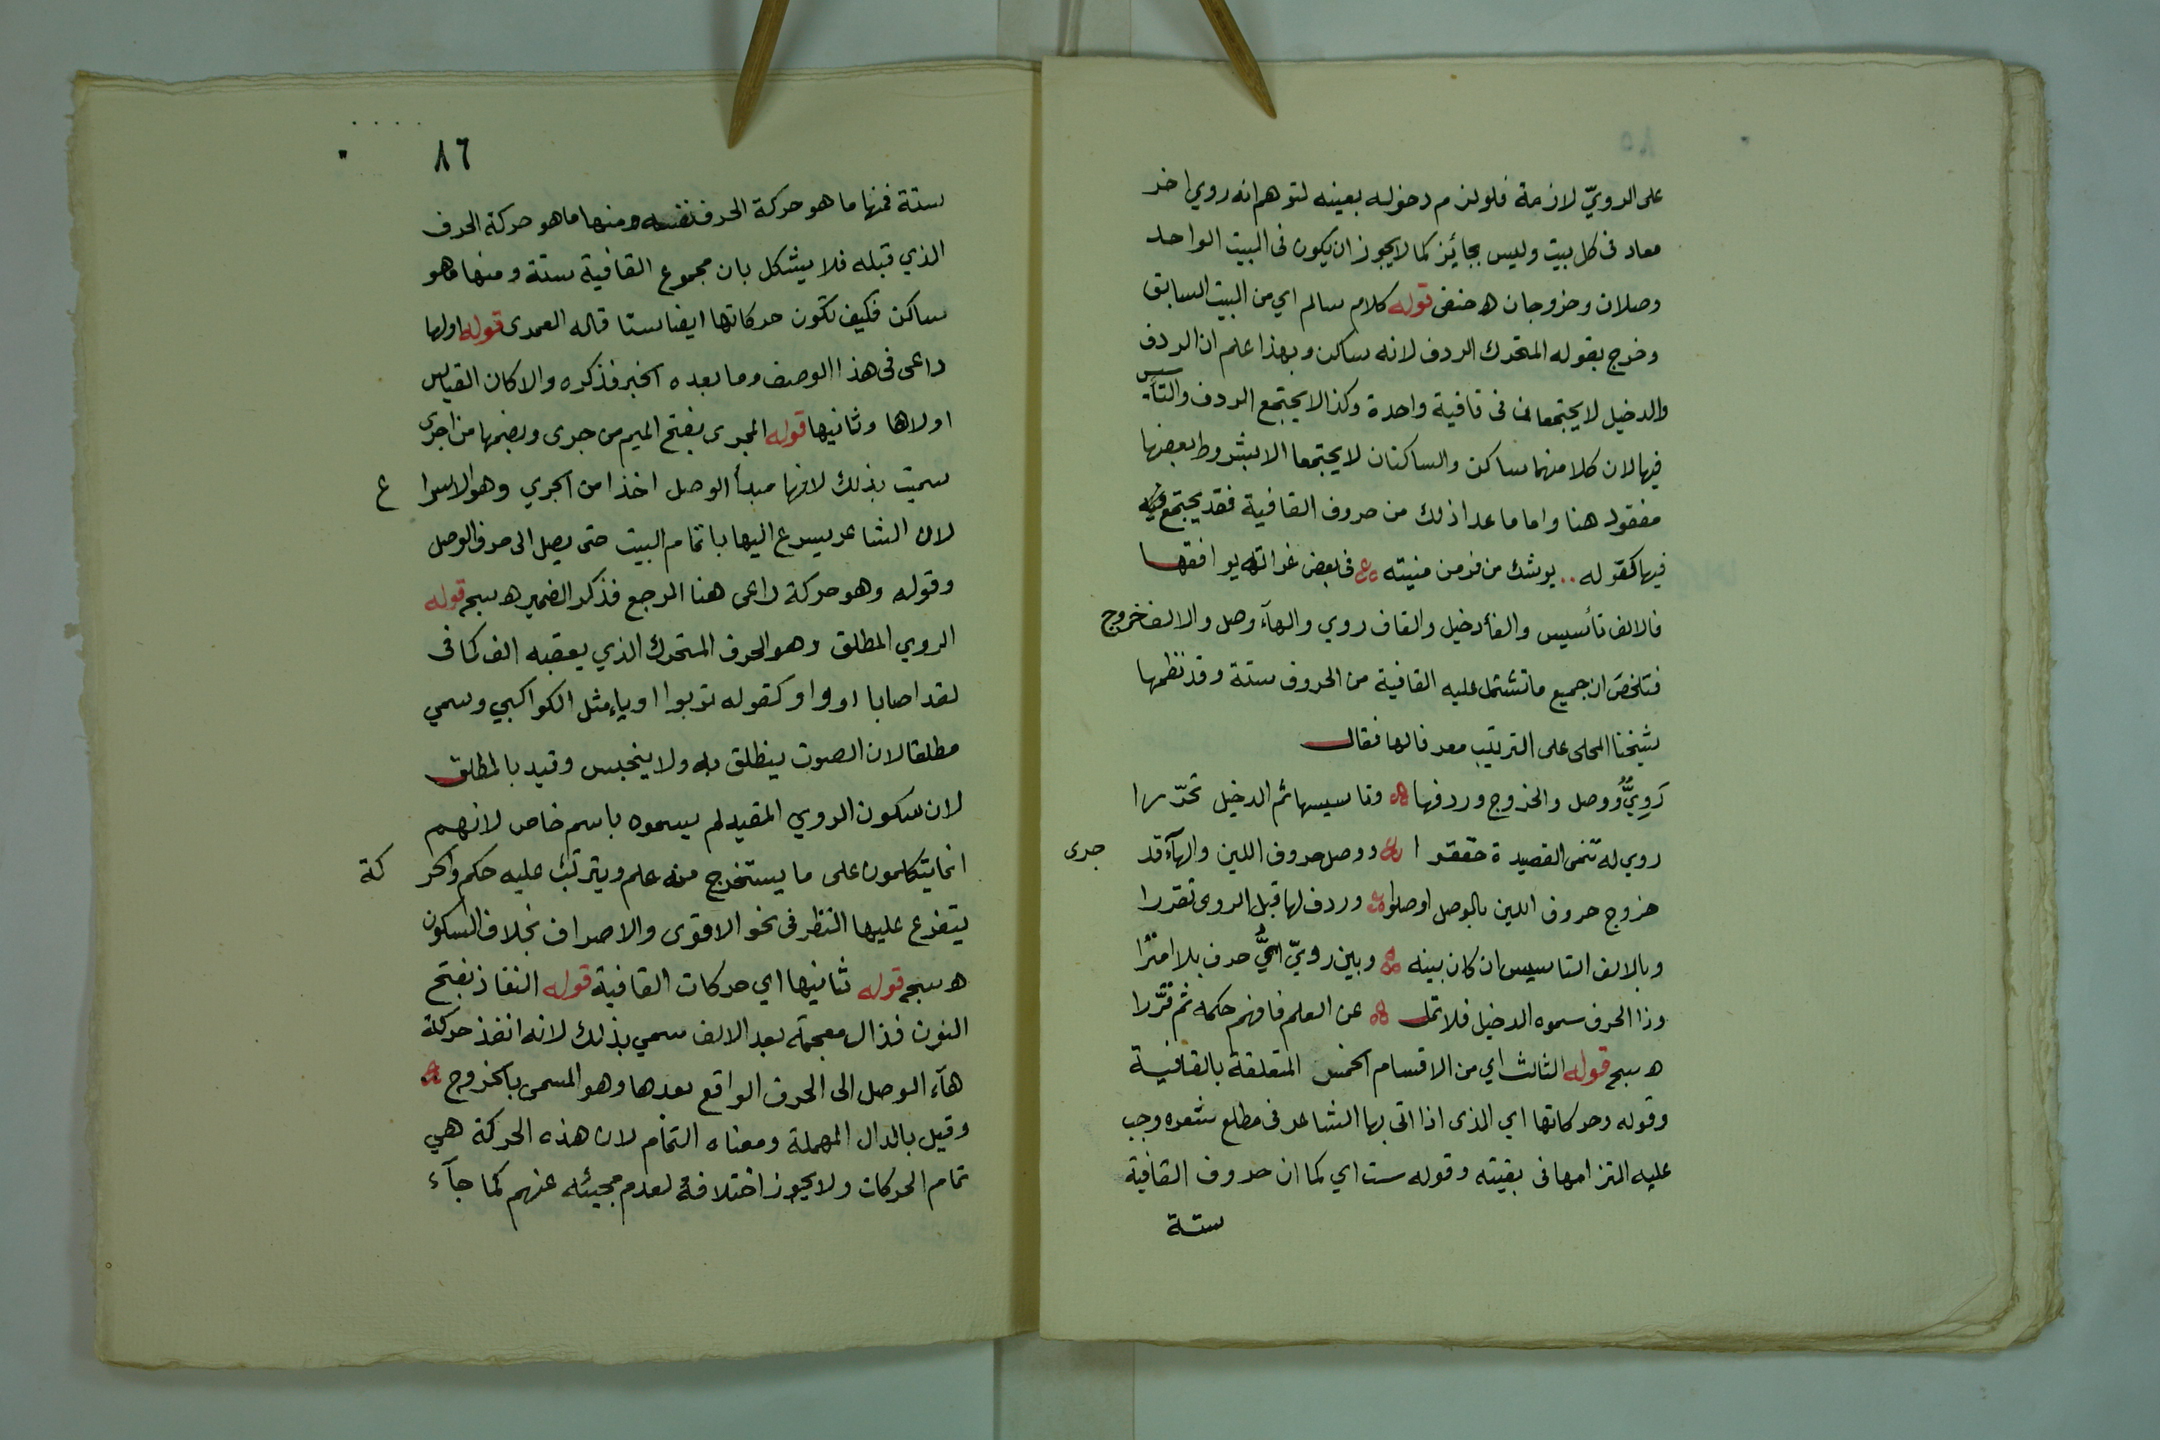 على الرويّ لازمة فلو لزم دخوله بعينه لتوهم انه روي اخر
معاد فى كل بيت وليس بجائيز كما لا يجوز ان يكون فى البيت الواحد
وصلان وخروجان ه حنفى قوله كلام سالم اي من البيت السابق
وخرج بقوله المتحرك الردف لانه ساكن وبهذا علم ان الردف
والدخيل لا يجتمعان فى قافية واحدة وكذا لا يجتمع الردف والتأسيس
فيها لان كلا منهما ساكن والساكنان لا يجتمعا الا بشروط بعضها
مفقود هنا واما ما عدا ذلك من حروف القافية فقد يجتمع
فيها كقوله .. يوشك من فر من منيته ه فى بعض غراته يوافقها
فالالف تأسيس والفأ دخيل والقاف روي والهآء وصل والالف خروج
فتلخص ان جميع ما تشتمل عليه القافية من الحروف ستة وقد نظمها
شيخنا المحلى على الترتيب معرفا لها فقال
رَوِيٌّ ووصل والخروج وردفها ه وتاسيسها ثم الدخيل تحرّرا
روي له تنمى القصيدة حققرا ه ووصل حروف اللين والهآء قد جرى
خروج حروف اللين بالوصل اوصلوا ه وردف لها قبل الروى تقررا
وبالالف التاسيس ان كان بينه ه وبين رويّ اىُّ حرف بلا امترا
وذا الحرف سموه الدخيل فلا تمل ه عن العلم فافهم حكمه ثم قرّرا
ه سجم قوله الثالث اي من الاقسام الخمس المتعلقة بالقافية
وقوله وحركاتها اي الذى اذا اتى بها الشاعر فى مطلع شعره وجب
عليه التزامها فى بقيته وقوله ست اي كما ان حروف القافية
ستة
٨٦
ستة فمنها ما هو حركة الحرف نفسه ومنها ما هو حركة الحرف
الذي قبله فلا يشكل بان مجموع القافية ستة ومنها ما هو
ساكن فكيف تكون حركاتها ايضا ستا قاله العمدى قوله اولها
راعى فى هذا الوصف وما بعده الخبر فذكره والا كان القياس
اولاها وثانيها قوله المجرى بفتح الميم من جرى وبضمها من اجرى
سميت بذلك لانها مبدأ الوصل اخذا من الجري وهو الاسراع
لان الشاعر يسرع اليها باتمام البيت حتى يصل الى حرف الوصل
وقوله وهو حركة راعى هنا المرجع فذكر الضمير ه سجم قوله
الروي المطلق وهو الحرف المتحرك الذي يعقبه الف كما فى
لقد اصابا او واو كقوله توبوا او ياء مثل الكواكبي وسمي
مطلقا لان الصوت ينطلق به ولا ينحبس وقيد بالمطلق
لان سكون الروي المقيد لم يسموه باسم خاص لانهم
انما يتكلمون على ما يستخرج منه علم ويترتب عليه حكم والحركة
يتفرع عليها النظر فى نحو الاقوى والاصراف بخلاف السكون
ه سجم قوله ثانيها اي حركات القافية قوله النفاذ بفتح
النون فذال معجمة بعد الالف سمي بذلك لانه انفذ حركة
هآء الوصل الى الحرف الواقع بعدها وهو المسمى بالخروج ه
وقيل بالدال المهملة ومعناه التمام لان هذه الحركة هي
تمام الحركات ولا يجوز اختلافه لعدم مجيئه عنهم كما جآء